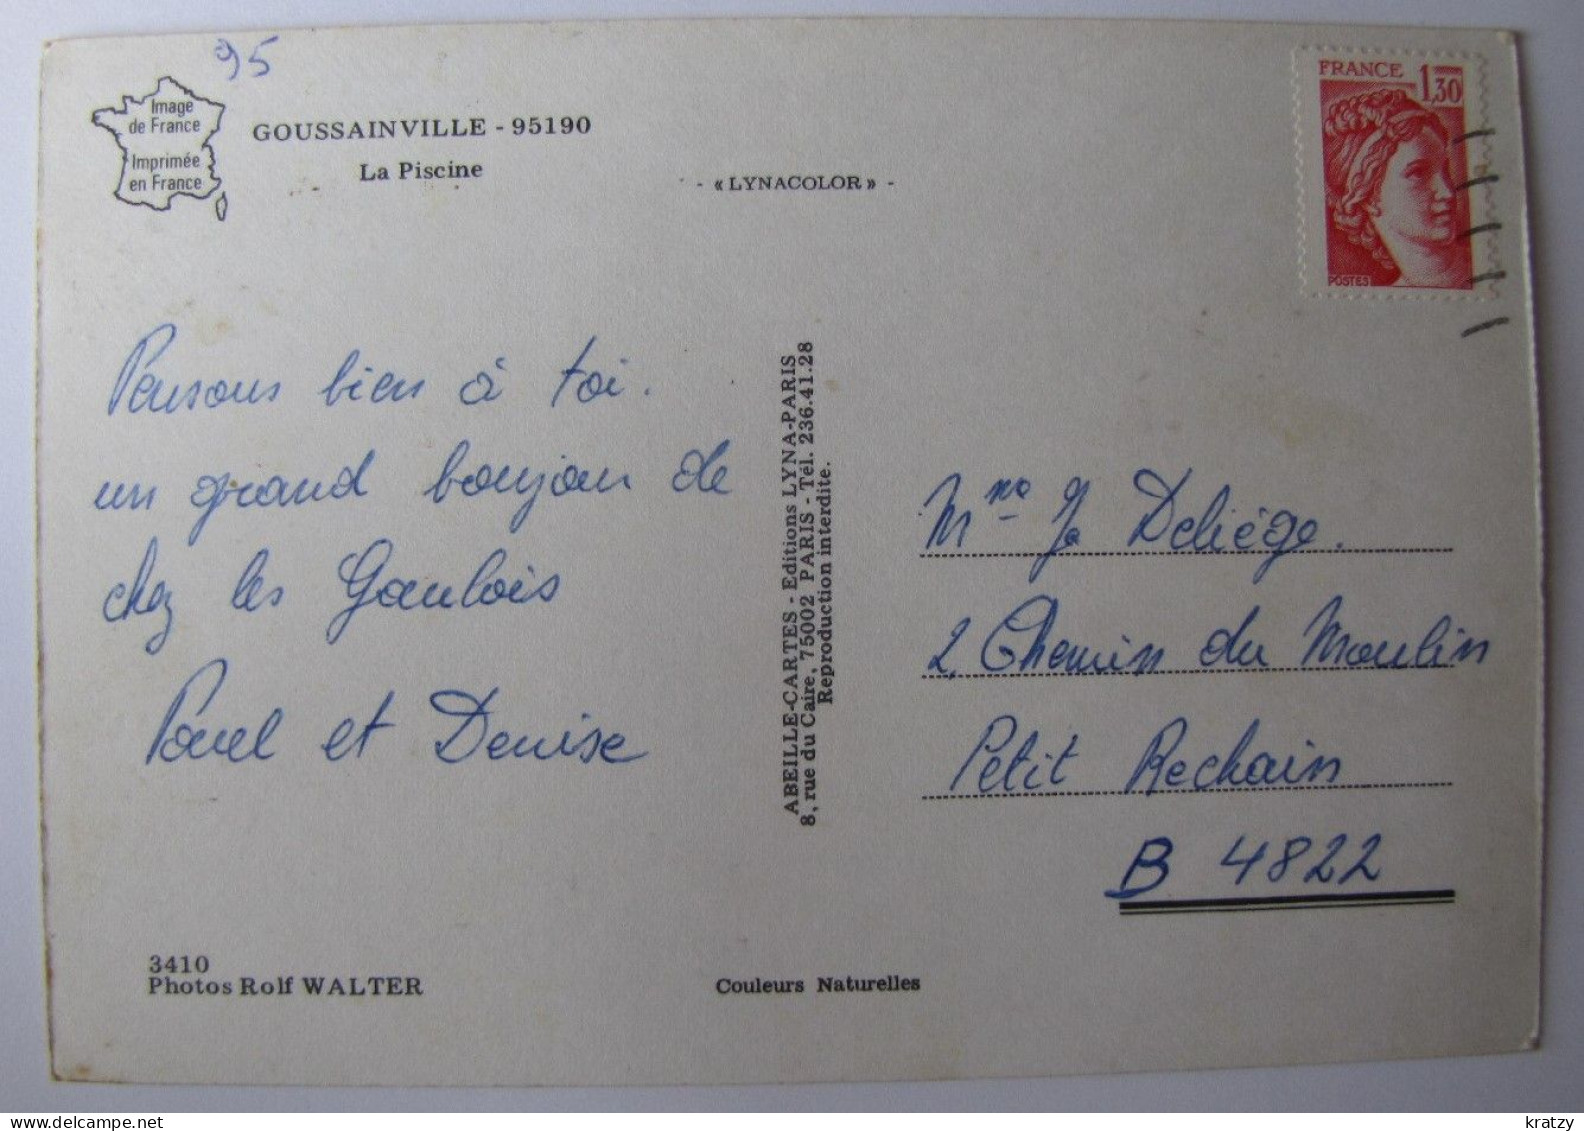 95
Image
de France
Imprimée
en France
GOUSSAINVILLE - 95190
La Piscine
- « LYNACOLOR » -
FRANCE 1,30
POSTES
Pensons bien à toi.
un grand bonjour de
chez les Gaulois
Paul et Denise
ABEILLE-CARTES - Editions LYNA-PARIS
8, rue du Caire, 75002 PARIS - Tél. 236.41.28
Reproduction interdite.
Mme J. Deliége.
2, Chemin du Moulin
Petit Rechain
B 4822
3410
Photos Rolf WALTER
Couleurs Naturelles
kratzy